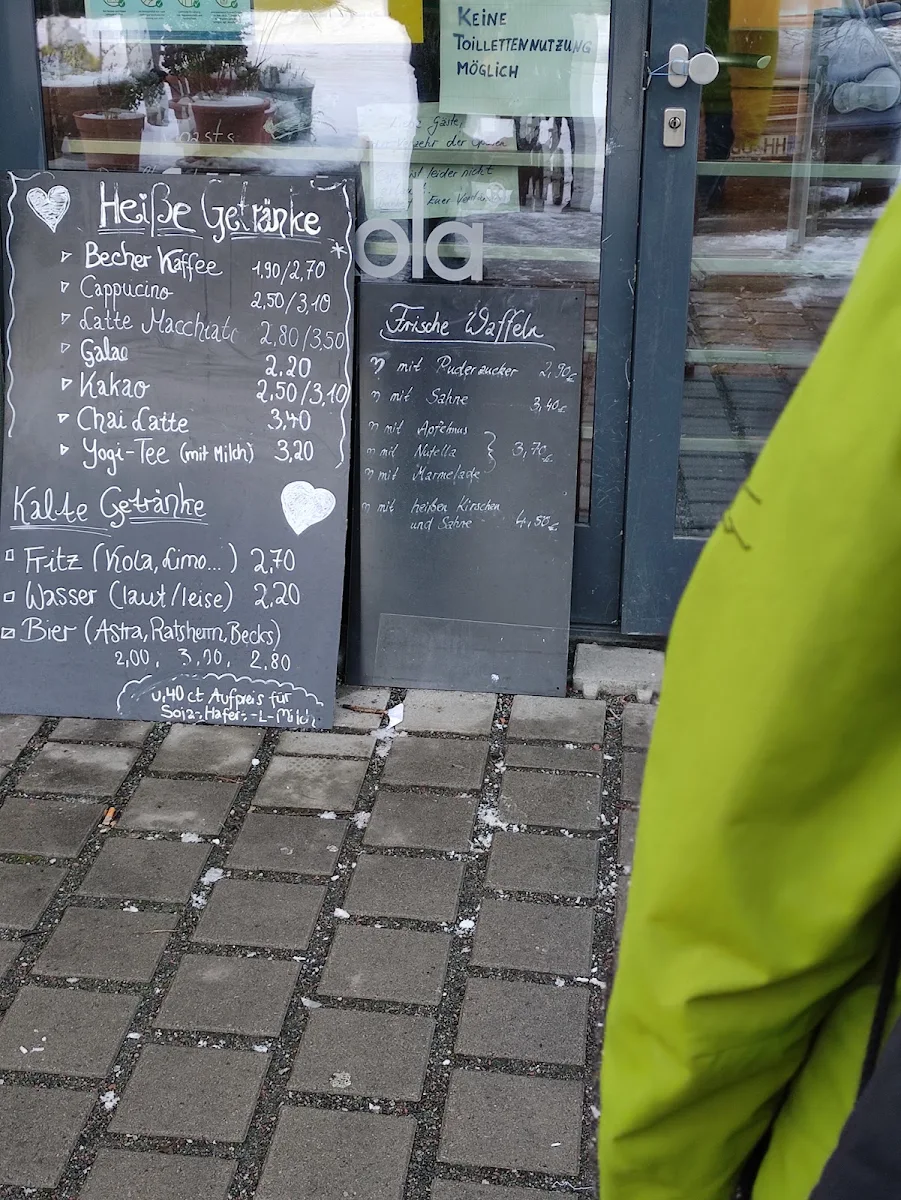 KEINE
TOILLETTENNUTZUNG
MÖGLICH
Gäste,
leider nicht
ola
Heiße Getränke
Becher Kaffee 1,90/2,70
Cappucino 2,50/3,10
Latte Macchiato 2,80/3,50
Galao 2,20
Kakao 2,50/3,10
Chai Latte 3,40
Yogi-Tee (mit Milch) 3,20
Kalte Getränke
Fritz (Kola, Limo...) 2,70
Wasser (laut/leise) 2,20
Bier (Astra, Ratsherrn, Becks)
2,00, 3,00, 2,80
0,40 ct Aufpreis für
Soja-, Hafer-, -L-Milch
Frische Waffeln
mit Puderzucker 2,90€
mit Sahne 3,40€
mit Apfelmus
mit Nutella 3,70€
mit Marmelade
mit heißen Kirschen
und Sahne 4,50€